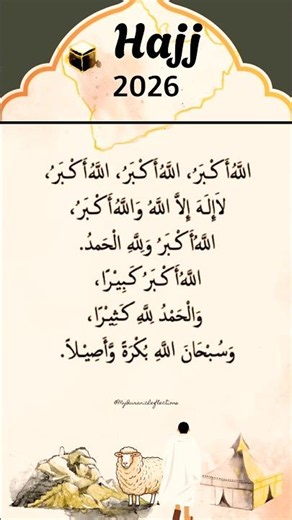 Hajj
2026
اللهُ أَكْبَرُ، اللهُ أَكْبَرُ، اللهُ أَكْبَرُ،
لَاإِلَهَ إِلاَّ اللهُ وَاللهُ أَكْبَرُ،
اللهُ أَكْبَرُ وَلِلَّهِ الْحَمدُ.
اللهُ أَكْبَرُ كَبِيْرًا،
وَالْحَمْدُ لِلَّهِ كَثِيْرًا،
وَسُبْحَانَ اللهِ بُكْرَةً وَّأَصِيْلاً.
@MyQuranicReflections